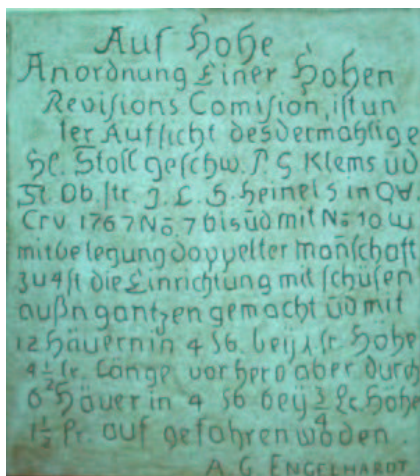 Auf Hohe
Anordnung Einer Hohen
Revisions Comision, ist un
ter Aufsicht des dermahlige
H. Stoll geschw. P. G Klems üd
St. Ob. str. J. C. S. Heinels in Qu
Crv. 1767 No. 7 bis üd mit No 10 w
mit belegung doppelter manschaft
zu 4 st die Einrichtung mit schüsen
außn gantzen gemacht üd mit
12 Häuern in 4 S6. beÿ 1 lr. Hohe
4 1/2 lr. Länge vorhero aber durch
6 Häuer in 4 S6 beÿ 3/4 Lr. Höhe
1 1/2 Lr. auf gefahren woden.
A. G. ENGELHARDT